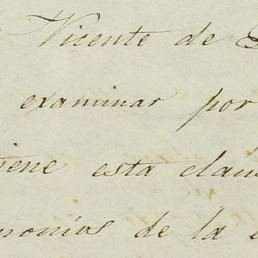 Vicente de
examinar por
iene esta clau
monios de la e